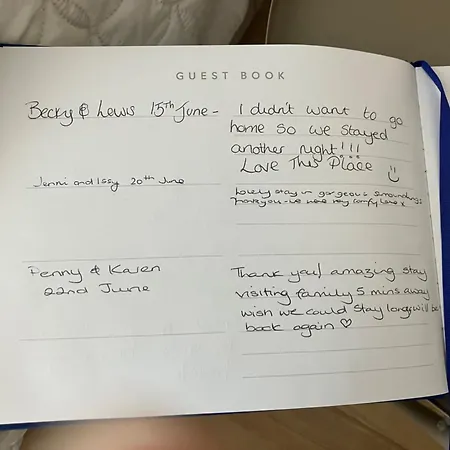 GUEST BOOK
Becky & Lewis 15th June -
I didn't want to go
home so we stayed
another night!!!
Love This Place
Jenni and Issy 20th June
Lovely stay in gorgeous surroundings
Thank you - we were very comfy Love x
Penny & Karen
22nd June
Thank you! amazing stay
visiting family 5 mins away
wish we could stay longer will be
back again ♡